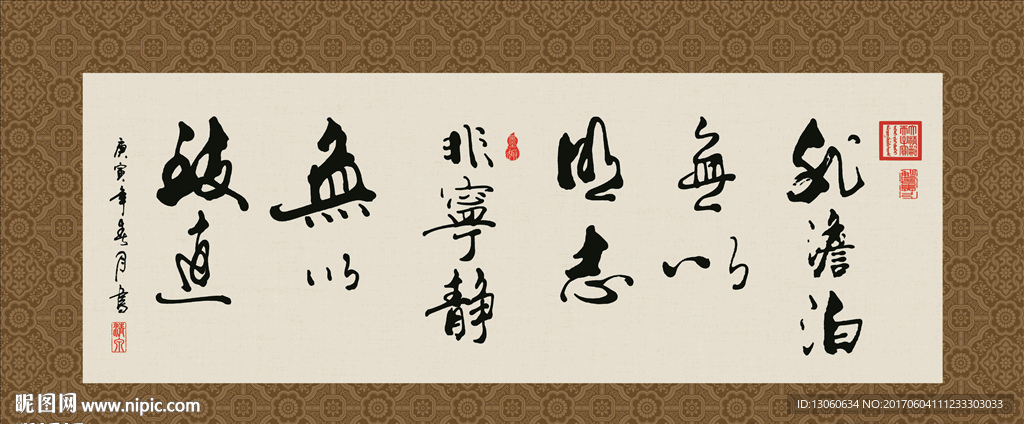 非澹泊
無以
明志
非寧静
無以
致遠
庚寅年春月書
昵图网 www.nipic.com
ID:13060634 NO:20170604111233303033